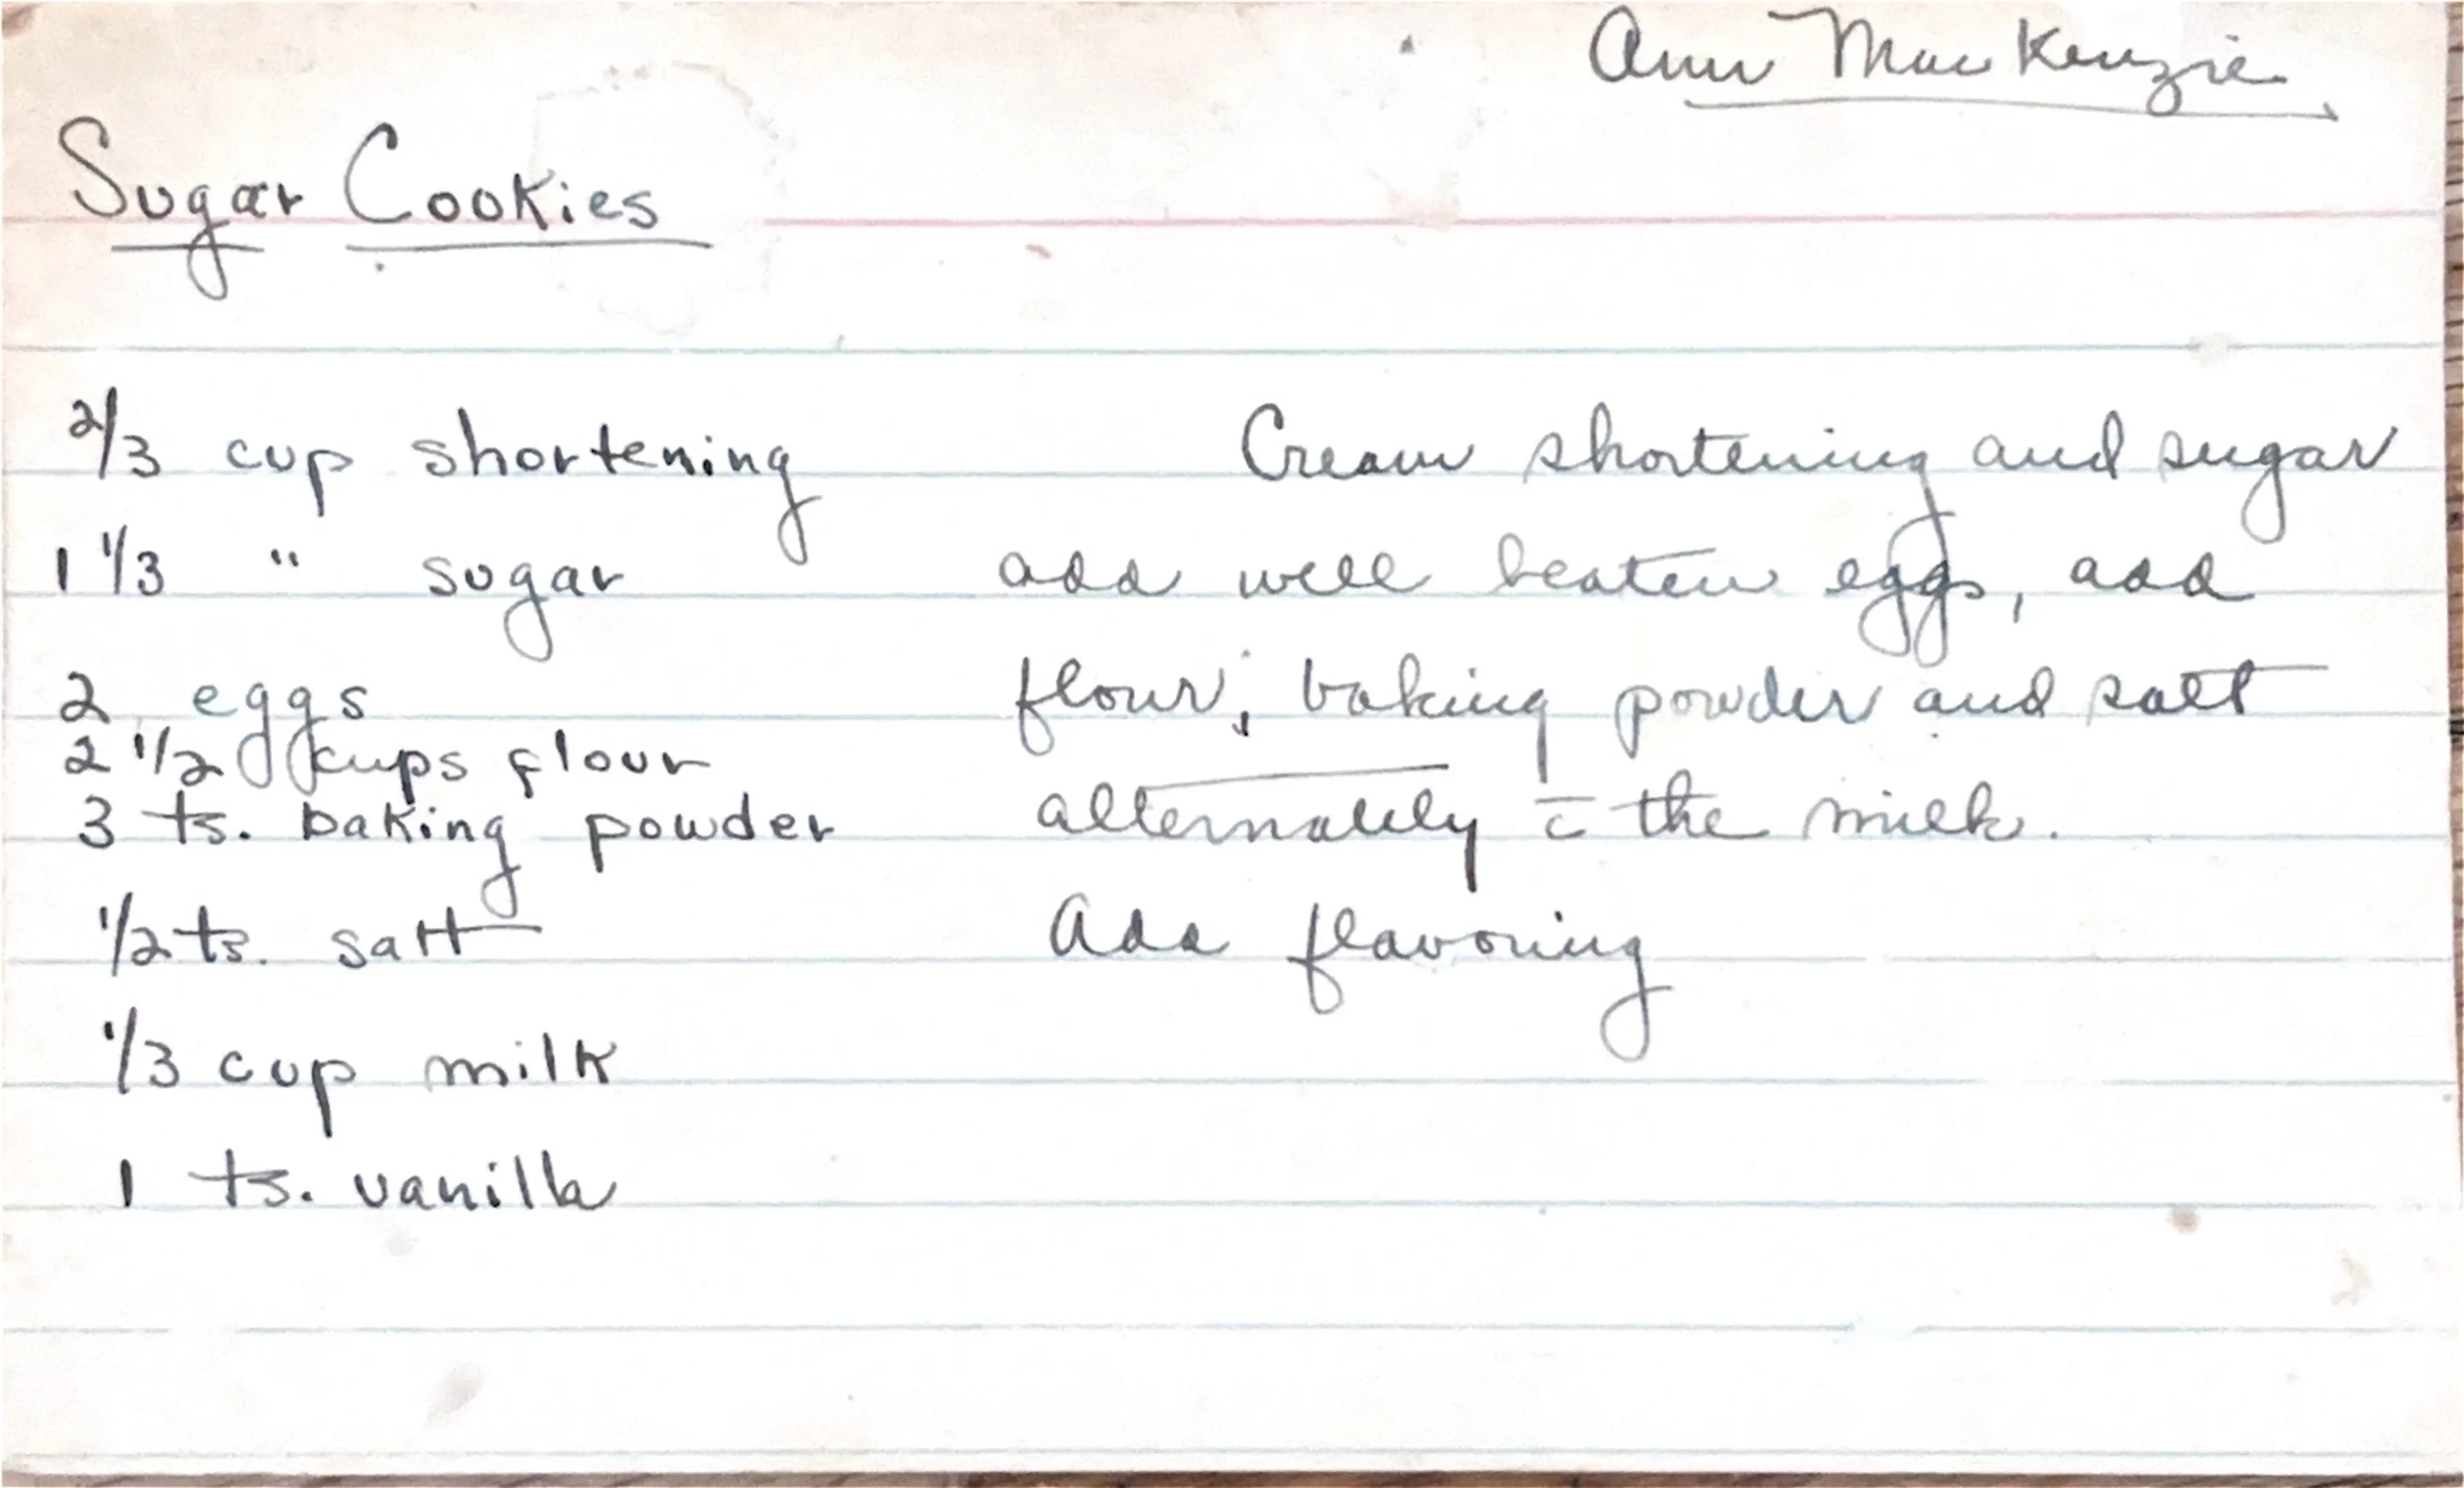 Ann MacKenzie
Sugar Cookies
2/3 cup shortening
1 1/3 " sugar
2 eggs
2 1/2 cups flour
3 ts. baking powder
1/2 ts. salt
1/3 cup milk
1 ts. vanilla
Cream shortening and sugar
add well beaten eggs, add
flour, baking powder and salt
alternately c̄ the milk.
Add flavoring